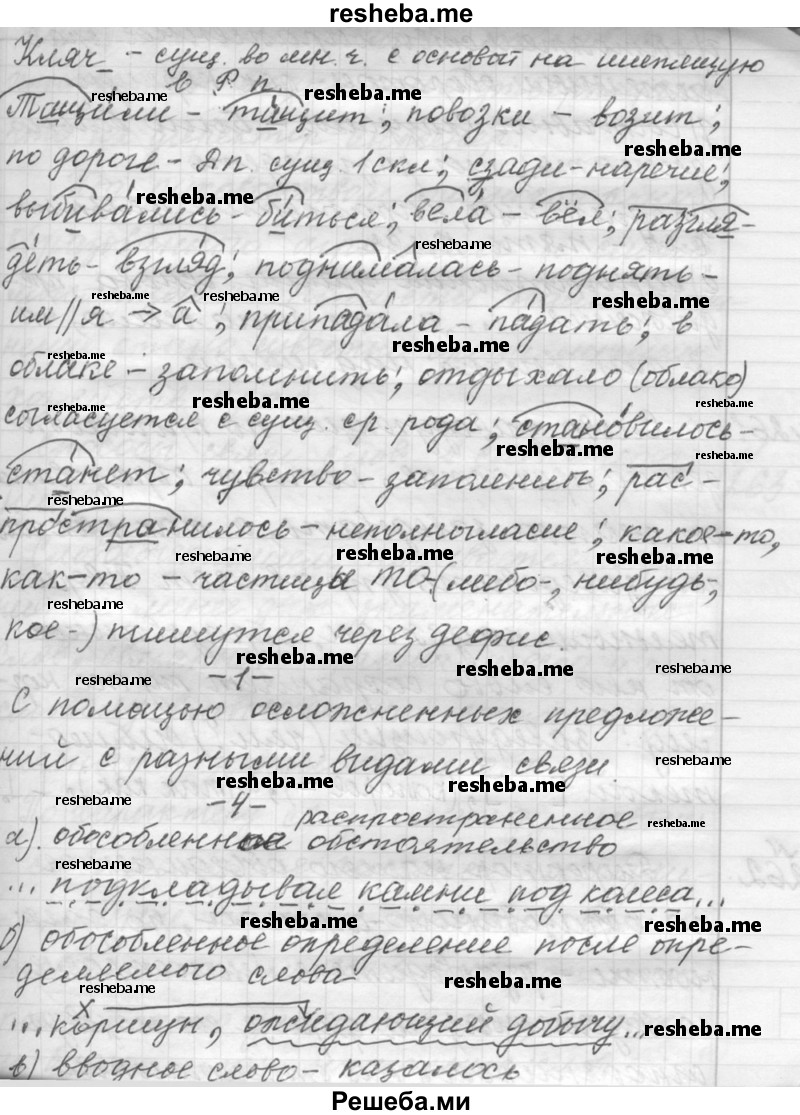 resheba.me
Кляч_ – сущ. во мн. ч. с основой на шипящую
в Р п
Тащили – тащит; повозки – возит;
по дороге – Дп. сущ. 1 скл; сзади – наречие;
выбивались – биться; вела – вёл; разгля-
деть – взгляд; поднималась – поднять –
им//я → а; припадала – падать; в
облаке – запомнить; отдыхало (облако)
согласуется с сущ. ср. рода; становилось –
станет; чувство – запомнить; рас-
пространилось – неполногласие; какое-то,
как-то – частицы ТО- (либо-, нибудь-,
кое-) пишутся через дефис.
–1–
С помощью осложненных предложе-
ний с разными видами связи.
–4–
распространенное
а). обособленное обстоятельство
... подкладывая камни под колеса...
б) обособленное определение после опре-
деляемого слова
... коршун, ожидающий добычу...
в) вводное слово – казалось
Решеба.ми